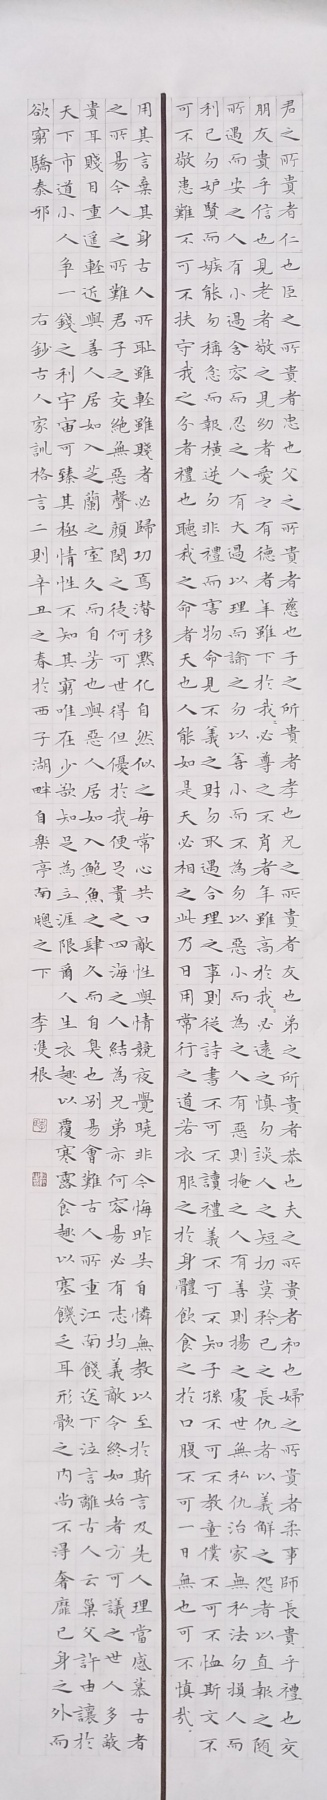 君之所貴者仁也臣之所貴者忠也父之所貴者慈也子之所貴者孝也兄之所貴者友也弟之所貴者恭也夫之所貴者和也婦之所貴者柔事師長貴乎禮也交
朋友貴乎信也見老者敬之見幼者愛之有德者年雖下於我必尊之不肖者年雖高於我必遠之慎勿談人之短切莫矜己之長仇者以義解之怨者以直報之隨
所遇而安之人有小過含容而忍之人有大過以理而諭之勿以善小而不為勿以惡小而為之人有惡則掩之人有善則揚之處世無私仇治家無私法勿損人而
利己勿妒賢而嫉能勿稱忿而報橫逆勿非禮而害物命見不義之財勿取遇合理之事則從詩書不可不讀禮義不可不知子孫不可不教童僕不可不恤斯文不
可不敬患難不可不扶守我之分者禮也聽我之命者天也人能如是天必相之此乃日用常行之道若衣服之於身體飲食之於口腹不可一日無也可不慎哉
用其言棄其身古人所恥雖輕雖賤者必歸功焉潛移默化自然似之每常心共口敵性與情競夜覺曉非今悔昨失自憐無教以至於斯言及先人理當感慕古者
之所易今人之所難君子之交絕無惡聲顏閔之徒何可世得但優於我便足貴之四海之人結為兄弟亦何容易必有志均義敵令終如始者方可議之世人多蔽
貴耳賤目重遙輕近與善人居如入芝蘭之室久而自芳也與惡人居如入鮑魚之肆久而自臭也別易會難古人所重江南餞送下泣言離古人云巢父許由讓於
天下市道小人爭一錢之利宇宙可臻其極情性不知其窮唯在少欲知足為立涯限爾人生衣趣以覆寒露食趣以塞饑乏耳形骸之內尚不得奢靡己身之外而
欲窮驕泰邪 右鈔古人家訓格言二則辛丑之春於西子湖畔自樂亭南牕之下 李雙根